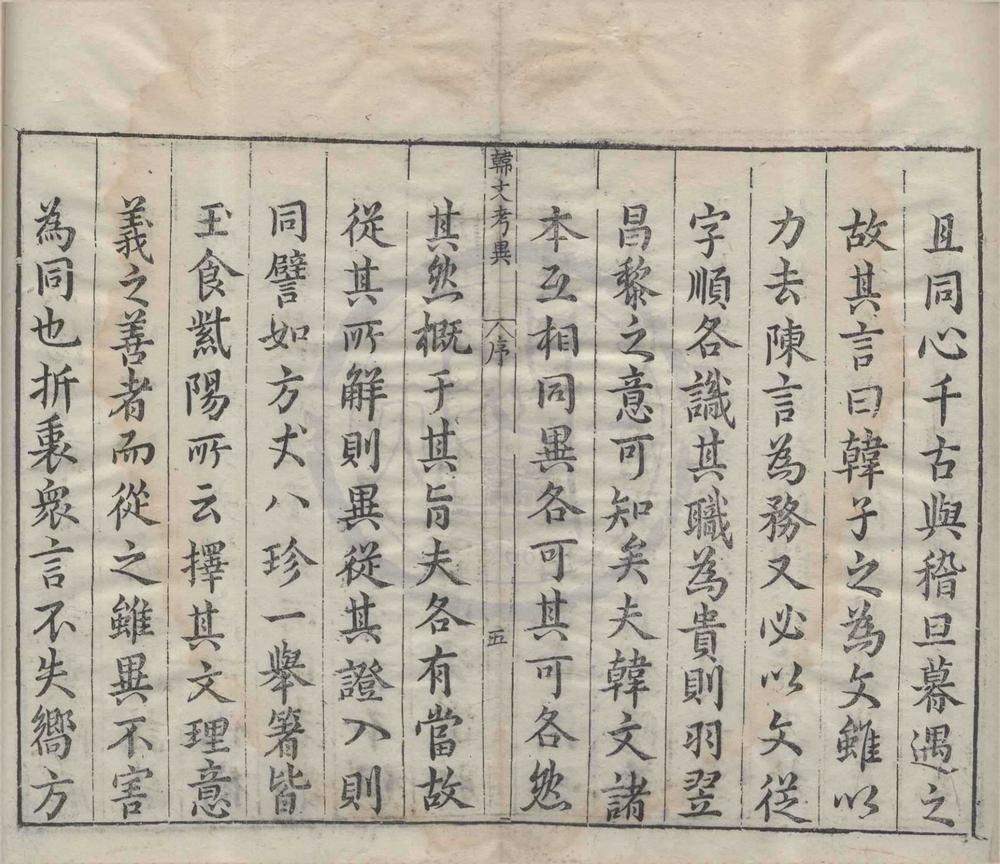 且同心千古與稽旦暮遇之
故其言曰韓子之為文雖以
力去陳言為務又必以文從
字順各識其職為貴則羽翌
昌黎之意可知矣夫韓文諸
本互相同異各可其可各然
韓文考異
序
五
其然概于其旨夫各有當故
從其所解則異從其證入則
同譬如方丈八珍一舉箸皆
玉食紫陽所云擇其文理意
義之善者而從之雖異不害
為同也折衷衆言不失嚮方